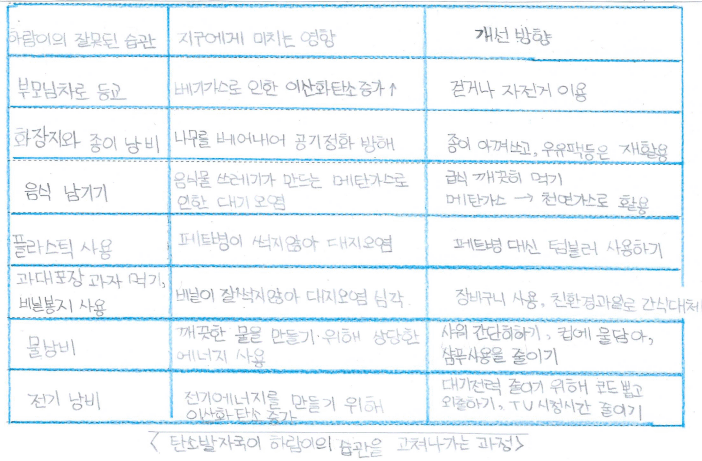 하람이의 잘못된 습관 지구에게 미치는 영향 개선 방향
부모님차로 등교 배기가스로 인한 이산화탄소증가↑ 걷거나 자전거 이용
화장지와 종이 낭비 나무를 베어내어 공기정화 방해 종이 아껴쓰고, 우유팩등은 재활용
음식 남기기 음식물 쓰레기가 만드는 메탄가스로
인한 대기오염 급식 깨끗히 먹기
메탄가스 → 천연가스로 활용
플라스틱 사용 페트병이 썩지않아 대지오염 페트병 대신 텀블러 사용하기
과대포장 과자 먹기,
비닐봉지 사용 비닐이 잘썩지않아 대지오염 심각 장바구니 사용, 친환경과일로 간식대체
물낭비 깨끗한 물을 만들기 위해 상당한
에너지 사용 샤워 간단히하기, 컵에 물담아,
샴푸사용을 줄이기
전기 낭비 전기에너지를 만들기 위해
이산화탄소 증가 대기전력 줄이기 위해 코드뽑고
외출하기, TV시청시간 줄이기
〈탄소발자국이 하람이의 습관을 고쳐나가는 과정〉